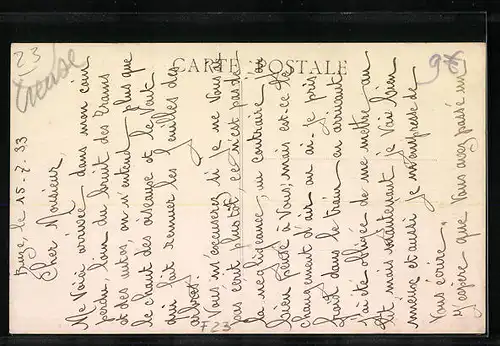 23
Creuse
CARTE POSTALE
9€
le 15-7-33
Cher Monsieur,
Me voici arrivée dans mon coin
perdu loin du bruit des trams
et des autos, on n'entend plus que
le chant des oiseaux et le vent
qui fait remuer les feuilles des
arbres.
Vous m'excuserez si je ne vous ai
pas écrit plus tôt, ce n'est pas de
la negligeance, au contraire j'ai
bien pensé à Vous; mais est-ce le
changement d'air ou ai-je pris
froid dans le train en arrivant
j'ai été obligée de me mettre au
lit mais maintenant je vais bien
mieux et aussi je m'empresse de
Vous écrire.
J'espère que Vous avez passé un
F23